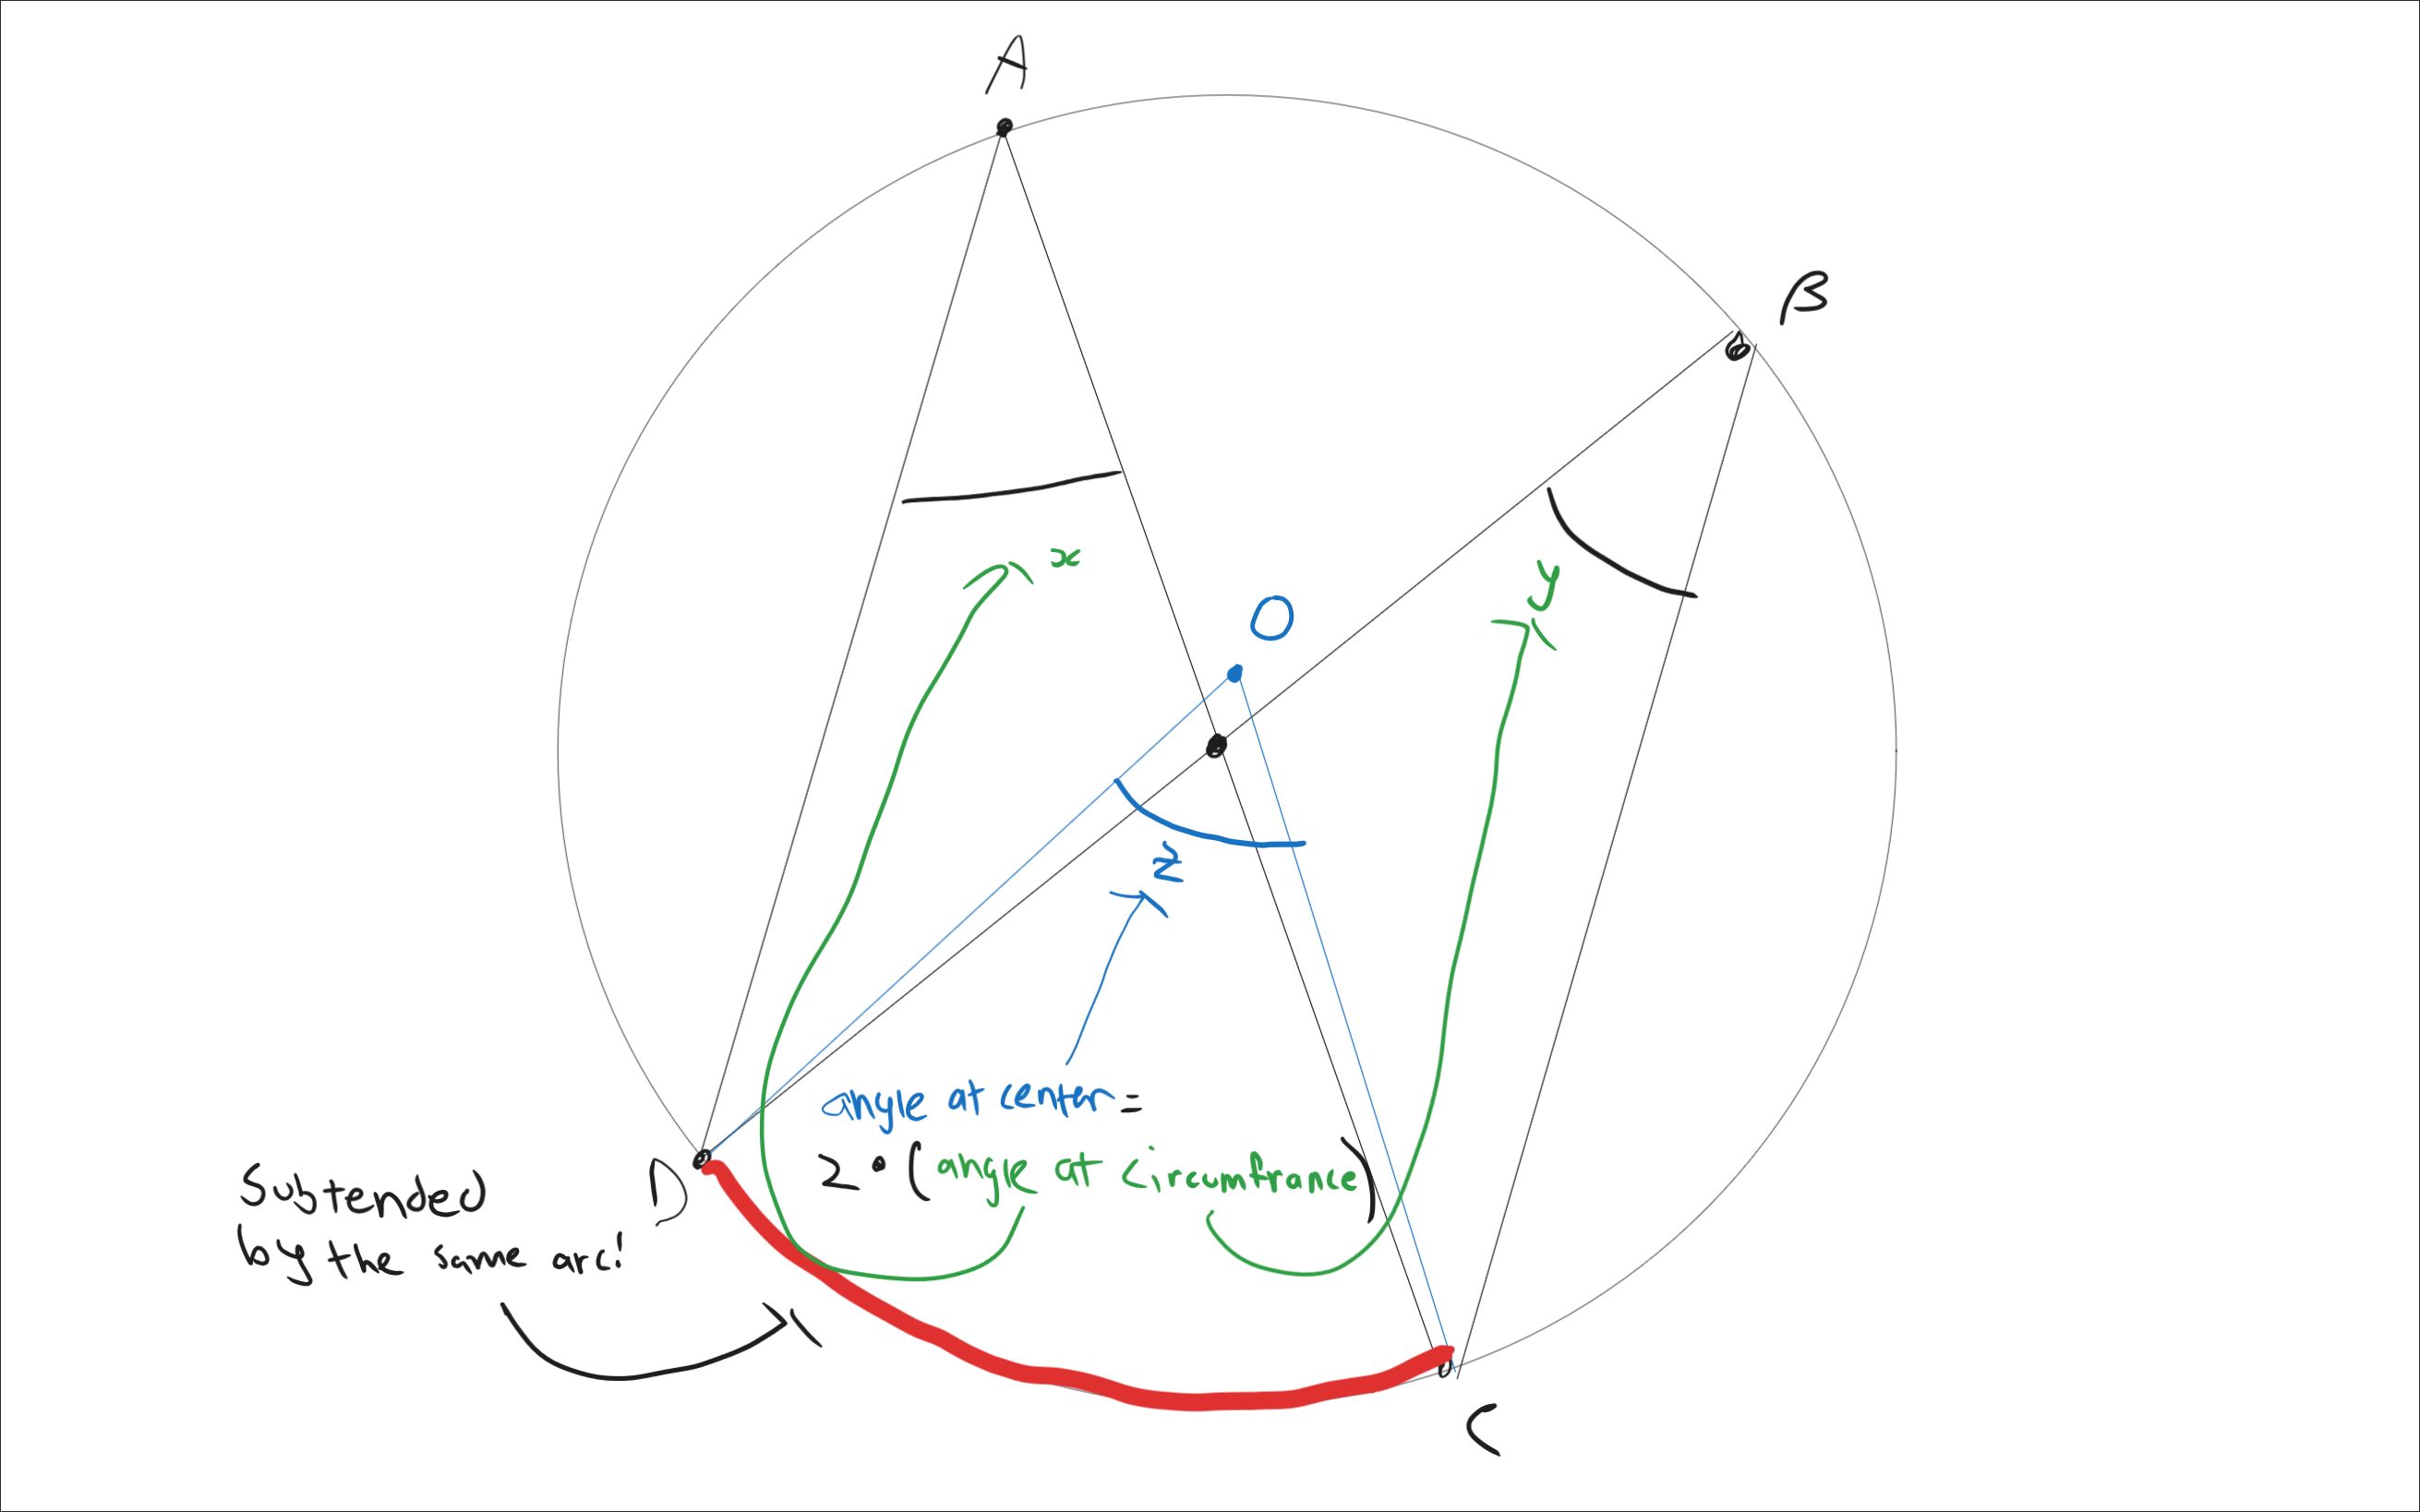 A
B
x
y
O
z
angle at center =
2 • (angle at circumfrance)
D
Subtended
by the same arc!
C